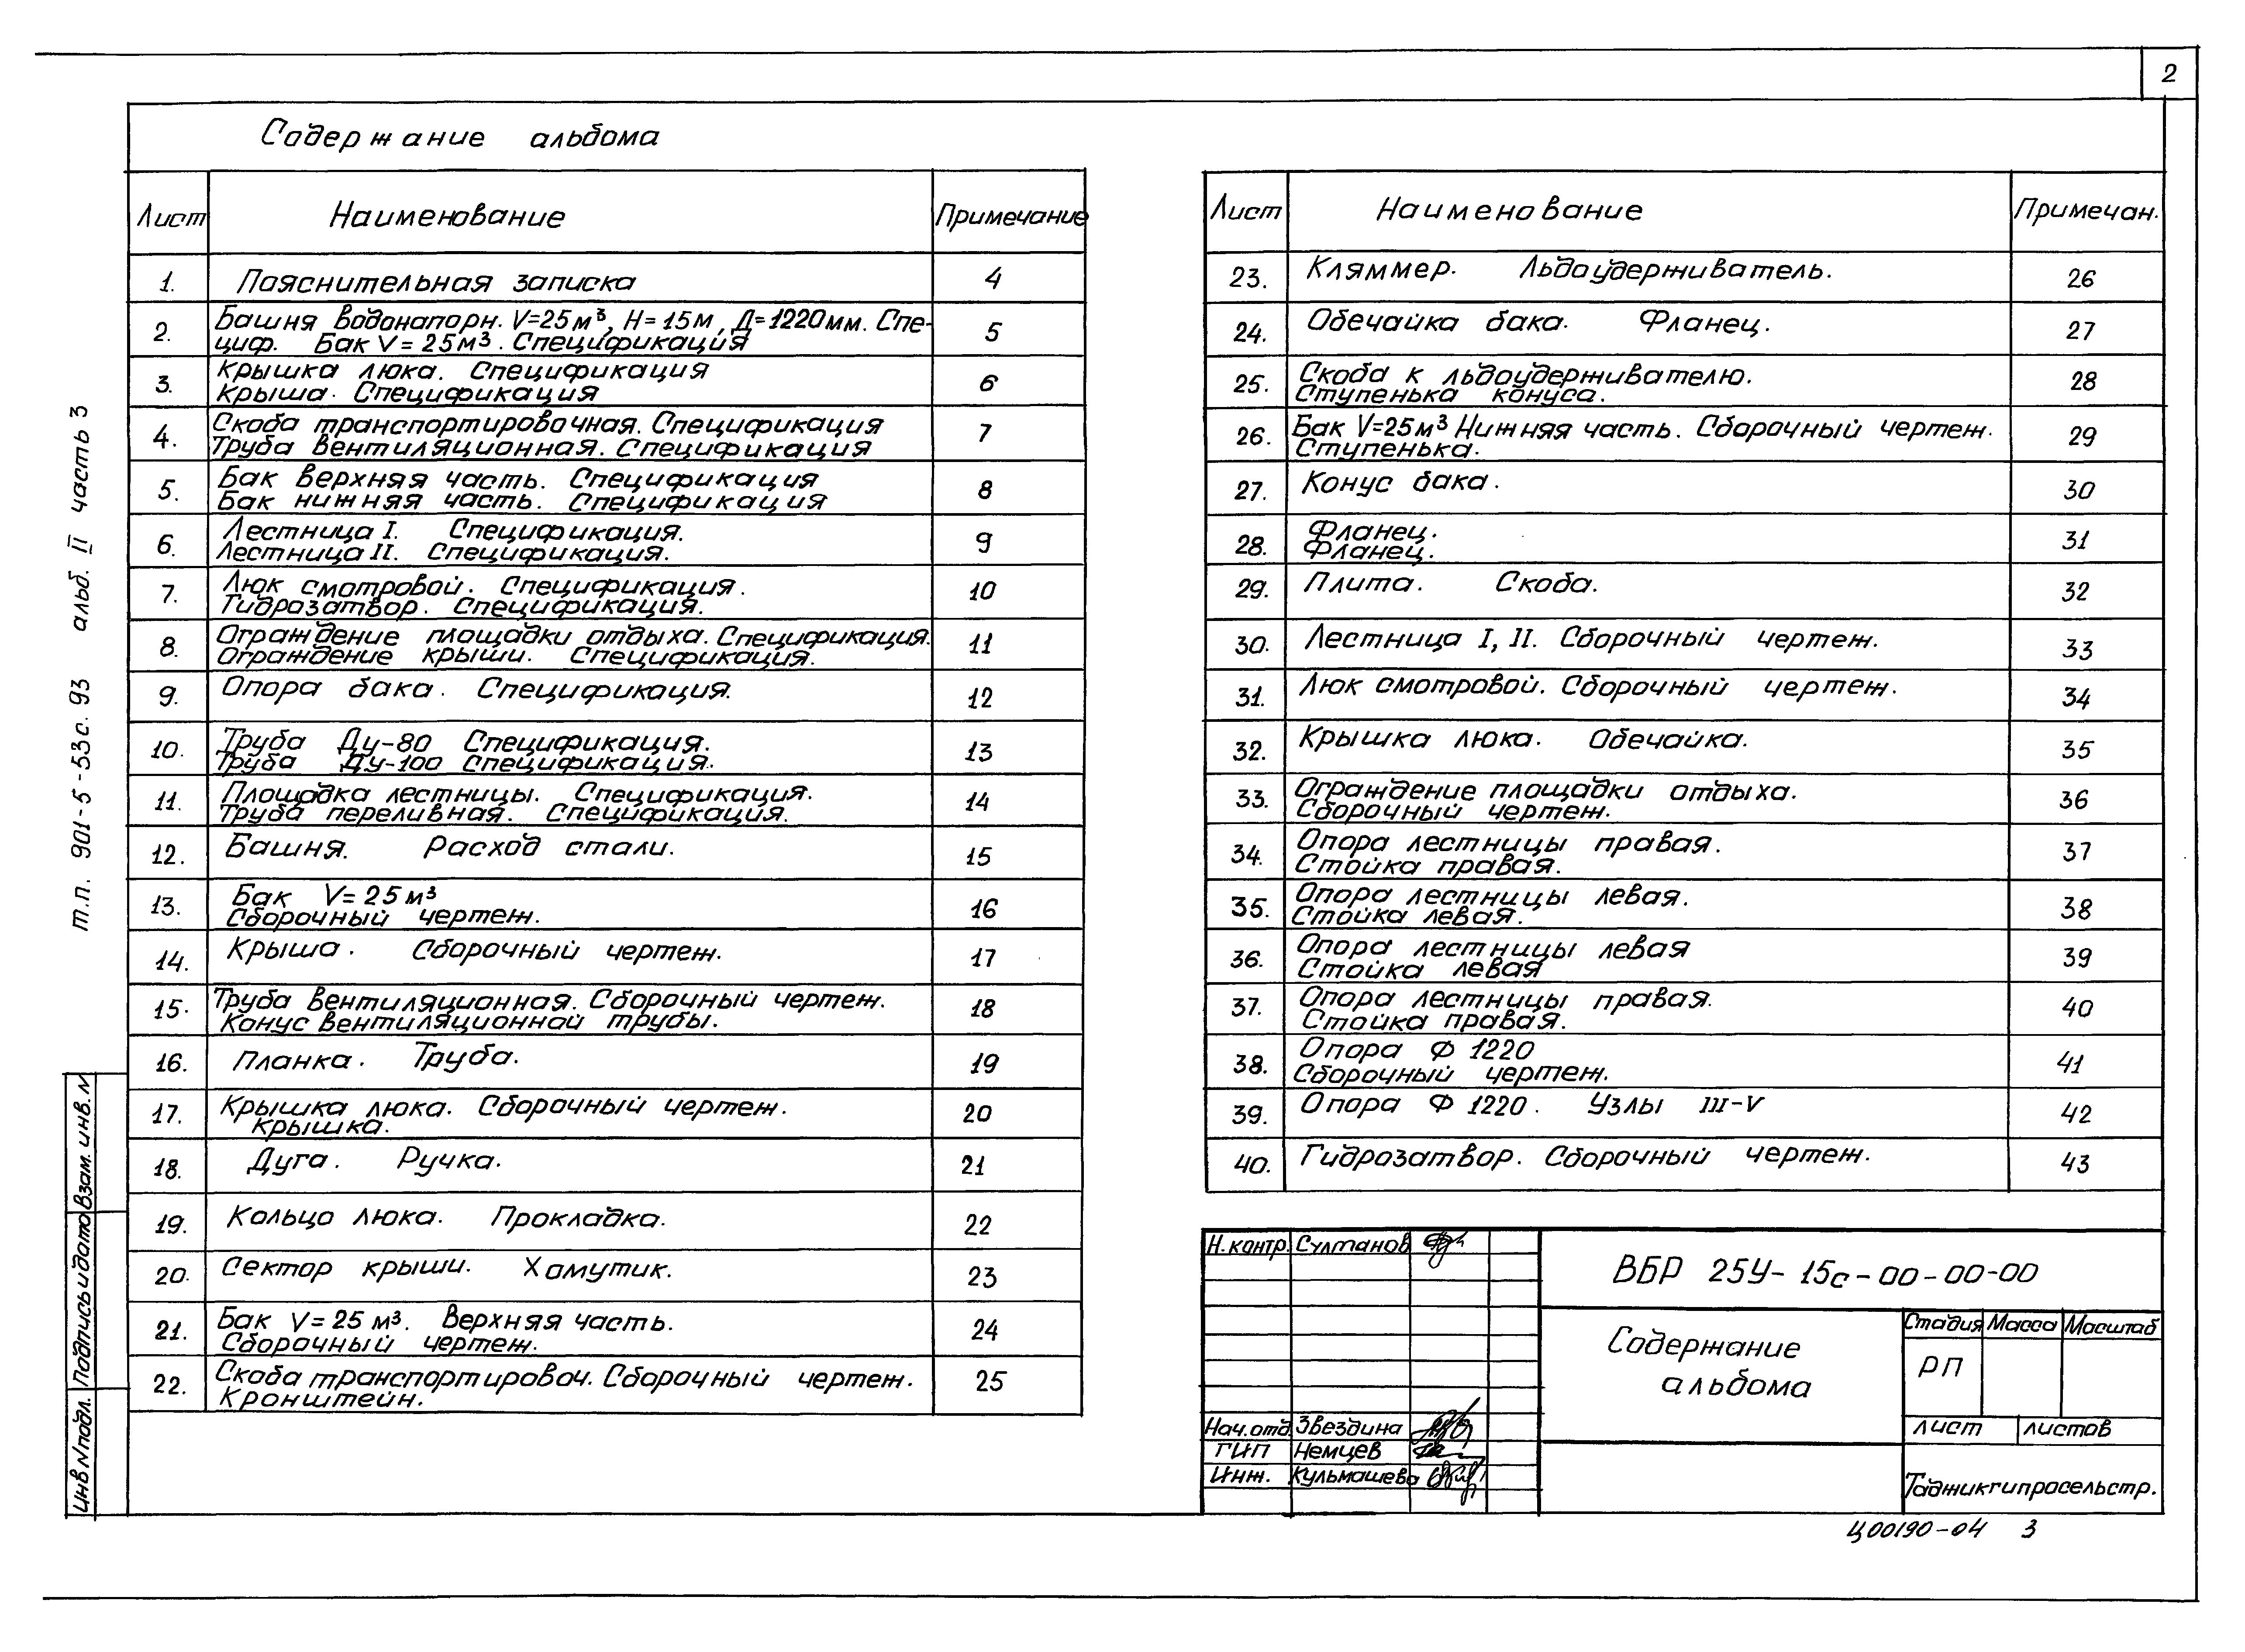 2
Содержание альбома
Лист Наименование Примечание
1. Пояснительная записка 4
2. Башня водонапорн. V=25м³, Н=15м, Д=1220мм. Спе-
циф. Бак V=25м³. Спецификация 5
3. Крышка люка. Спецификация
Крыша. Спецификация 6
4. Скоба транспортировочная. Спецификация
Труба вентиляционная. Спецификация 7
5. Бак верхняя часть. Спецификация
Бак нижняя часть. Спецификация 8
6. Лестница I. Спецификация.
Лестница II. Спецификация. 9
7. Люк смотровой. Спецификация.
Гидрозатвор. Спецификация. 10
8. Ограждение площадки отдыха. Спецификация.
Ограждение крыши. Спецификация. 11
9. Опора бака. Спецификация. 12
10. Труба Ду-80 Спецификация.
Труба Ду-100 Спецификация. 13
11. Площадка лестницы. Спецификация.
Труба переливная. Спецификация. 14
12. Башня. Расход стали. 15
13. Бак V=25м³
Сборочный чертеж. 16
14. Крыша. Сборочный чертеж. 17
15. Труба вентиляционная. Сборочный чертеж.
Конус вентиляционной трубы. 18
16. Планка. Труба. 19
17. Крышка люка. Сборочный чертеж.
Крышка. 20
18. Дуга. Ручка. 21
19. Кольцо люка. Прокладка. 22
20. Сектор крыши. Хомутик. 23
21. Бак V=25м³. Верхняя часть.
Сборочный чертеж. 24
22. Скоба транспортировоч. Сборочный чертеж.
Кронштейн. 25
Лист Наименование Примечан.
23. Кляммер. Льдоудерживатель. 26
24. Обечайка бака. Фланец. 27
25. Скоба к льдоудерживателю.
Ступенька конуса. 28
26. Бак V=25м³ Нижняя часть. Сборочный чертеж.
Ступенька. 29
27. Конус бака. 30
28. Фланец.
Фланец. 31
29. Плита. Скоба. 32
30. Лестница I, II. Сборочный чертеж. 33
31. Люк смотровой. Сборочный чертеж. 34
32. Крышка люка. Обечайка. 35
33. Ограждение площадки отдыха.
Сборочный чертеж. 36
34. Опора лестницы правая.
Стойка правая. 37
35. Опора лестницы левая.
Стойка левая. 38
36. Опора лестницы левая
Стойка левая 39
37. Опора лестницы правая.
Стойка правая. 40
38. Опора Ф 1220
Сборочный чертеж. 41
39. Опора Ф 1220. Узлы III-V 42
40. Гидрозатвор. Сборочный чертеж. 43
т.п. 901-5-53с.93 альб. II часть 3
Взам. инв. N
Подпись и дата
Инв N подл.
Н. контр. Султанов
Нач. отд. Звездина
ГИП Немцев
Инж. Кульмашева
ВБР 25У-15с-00-00-00
Содержание
альбома
Стадия Масса Масштаб
РП
лист листов
Таджикгипросельстр.
Ц00190-04 3